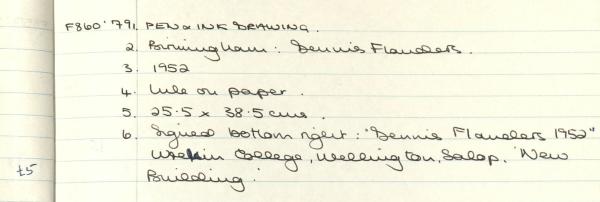 F860'79 1. PEN & INK DRAWING.
2. Birmingham: Dennis Flanders.
3. 1952
4. Ink on paper.
5. 25.5 x 38.5 cms.
6. Signed bottom right: "Dennis Flanders 1952"
Wrekin College, Wellington, Salop. 'New
£5 Building'